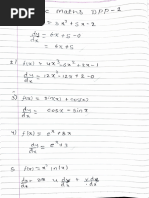 Maths DPP - 2
= 3x² + 5x - 2
dy/dx = 6x + 5 - 0
= 6x + 5
2) f(x) = 4x³ - 6x² + 2x - 1
dy/dx = 12x² - 12x + 2 - 0
3) f(x) = sin(x) + cos(x)
dy/dx = cosx - sinx
4) f(x) = eˣ + 3x
dy/dx = eˣ + 3
5) f(x) = x² ln(x)
dy/dx = u dv/dx + v du/dx